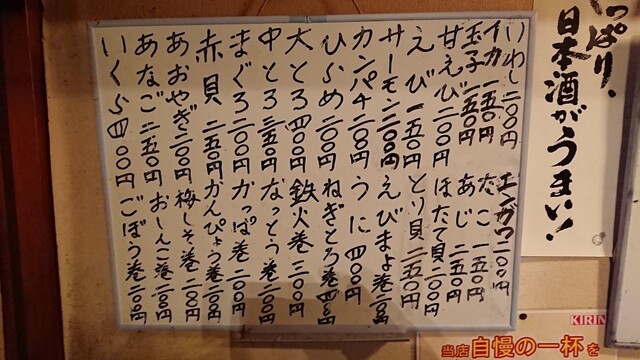 っぱり、
日本酒がうまい!
いわし二〇〇円
イカ一五〇円
玉子一五〇円
甘えび二〇〇円
えび一五〇円
サーモン二〇〇円
カンパチ二〇〇円
ひらめ二〇〇円
大とろ四〇〇円
中とろ三五〇円
まぐろ二〇〇円
赤貝二五〇円
あおやぎ二〇〇円
あなご二五〇円
いくら四〇〇円
エンガワ二〇〇円
たこ一五〇円
あじ二五〇円
ほたて貝二〇〇円
とり貝二五〇円
えびまよ巻二〇〇円
うに四〇〇円
ねぎとろ巻
鉄火巻二〇〇円
なっとう巻二〇〇円
かっぱ巻二〇〇円
かんぴょう巻二〇〇円
梅しそ巻二〇〇円
おしんこ巻二〇〇円
ごぼう巻二〇〇円
KIRIN
当店自慢の一杯を